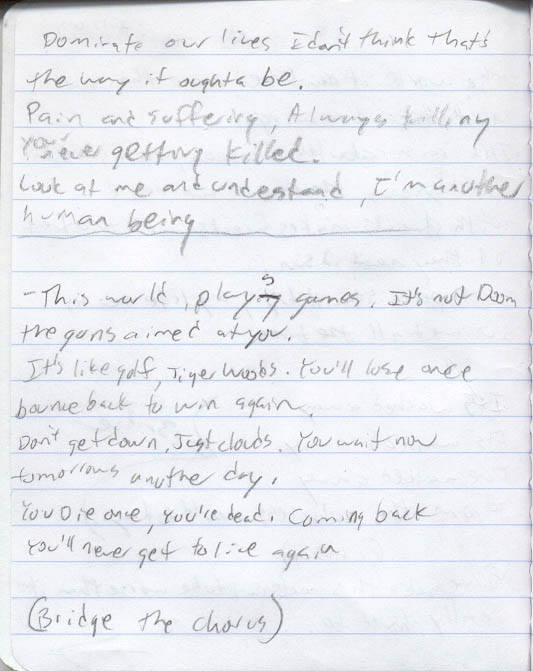 Dominate our lives I don't think that's
the way it oughta be.
Pain and suffering, Always killing
your never getting killed.
Look at me and understand, I'm another
human being
- This world, plays games. It's not Doom
the guns aimed at you.
It's like golf, Tiger Woods. You'll lose once
bounce back to win again.
Don't get down, Just clouds. You wait now
tomorrows another day.
You Die once, you're dead. Coming back
you'll never get to live again
(Bridge the chorus)